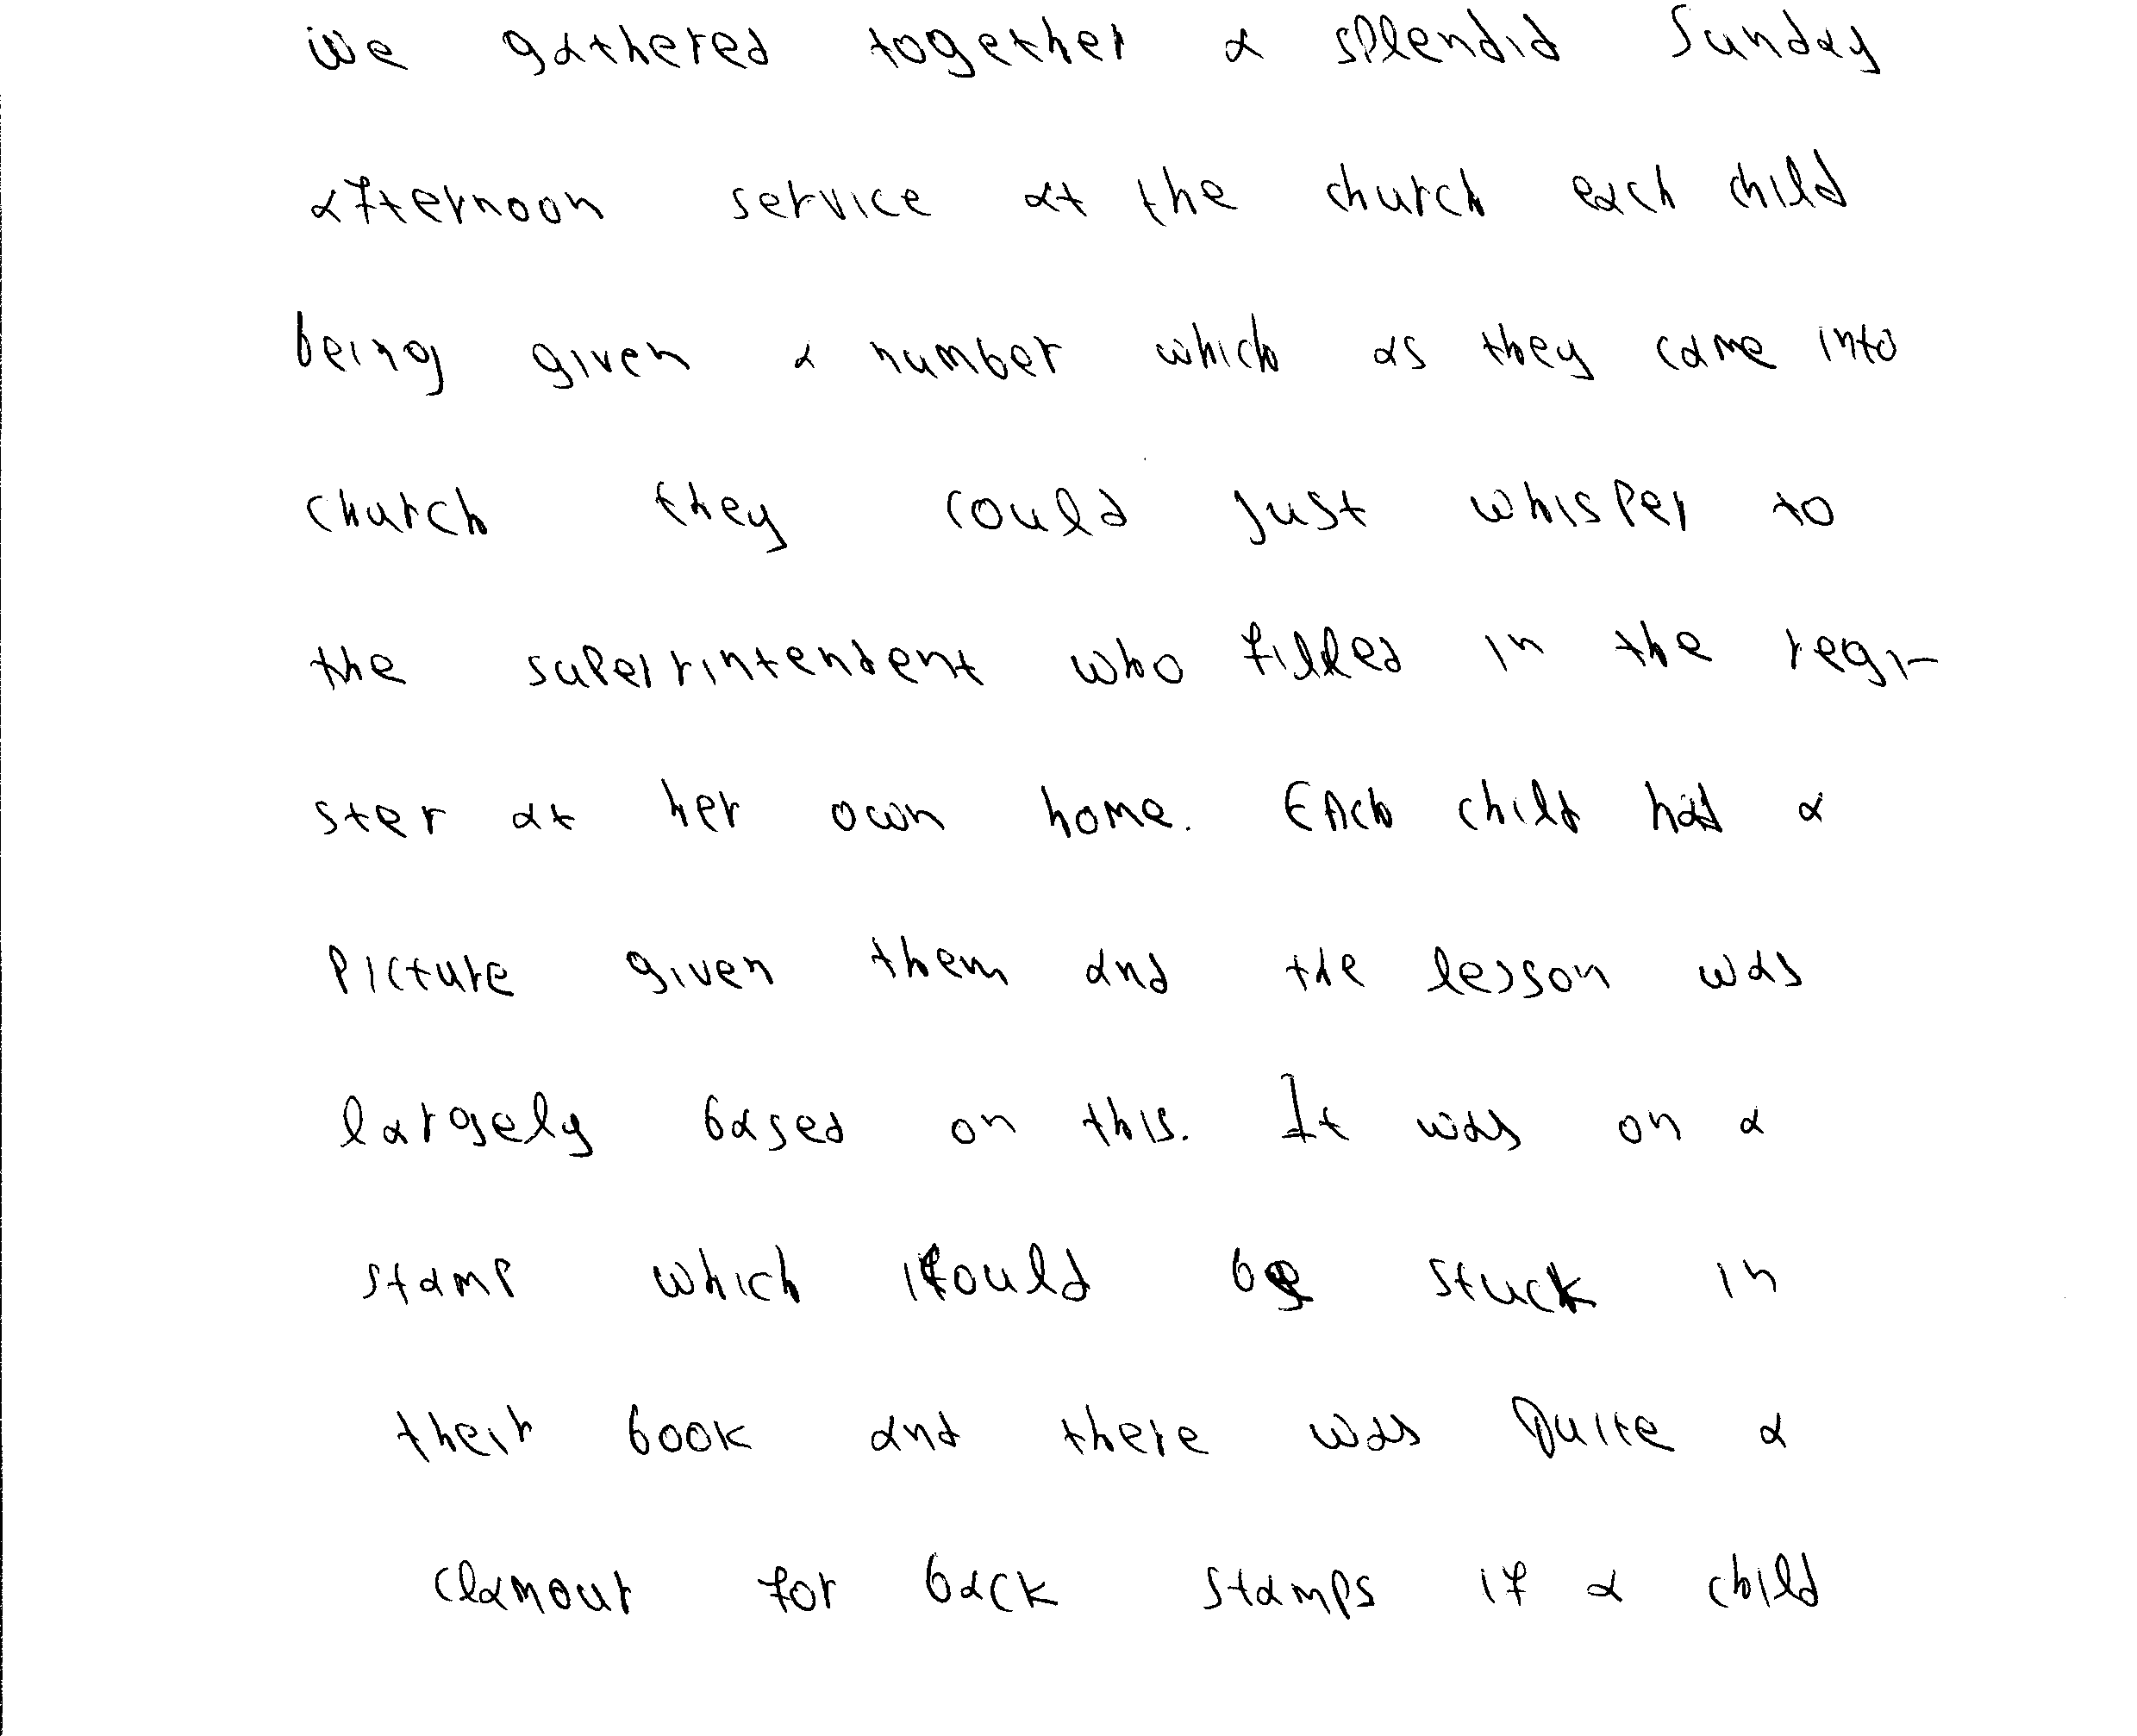 we gathered together a splendid Sunday
afternoon service at the church each child
being given a number which as they came into
church they could just whisper to
the superrintendent who filled in the regi-
ster at her own home. Each child had a
picture given them and the lesson was
largely based on this. It was on a
stamp which could be stuck in
their book and there was quite a
clamour for back stamps if a child